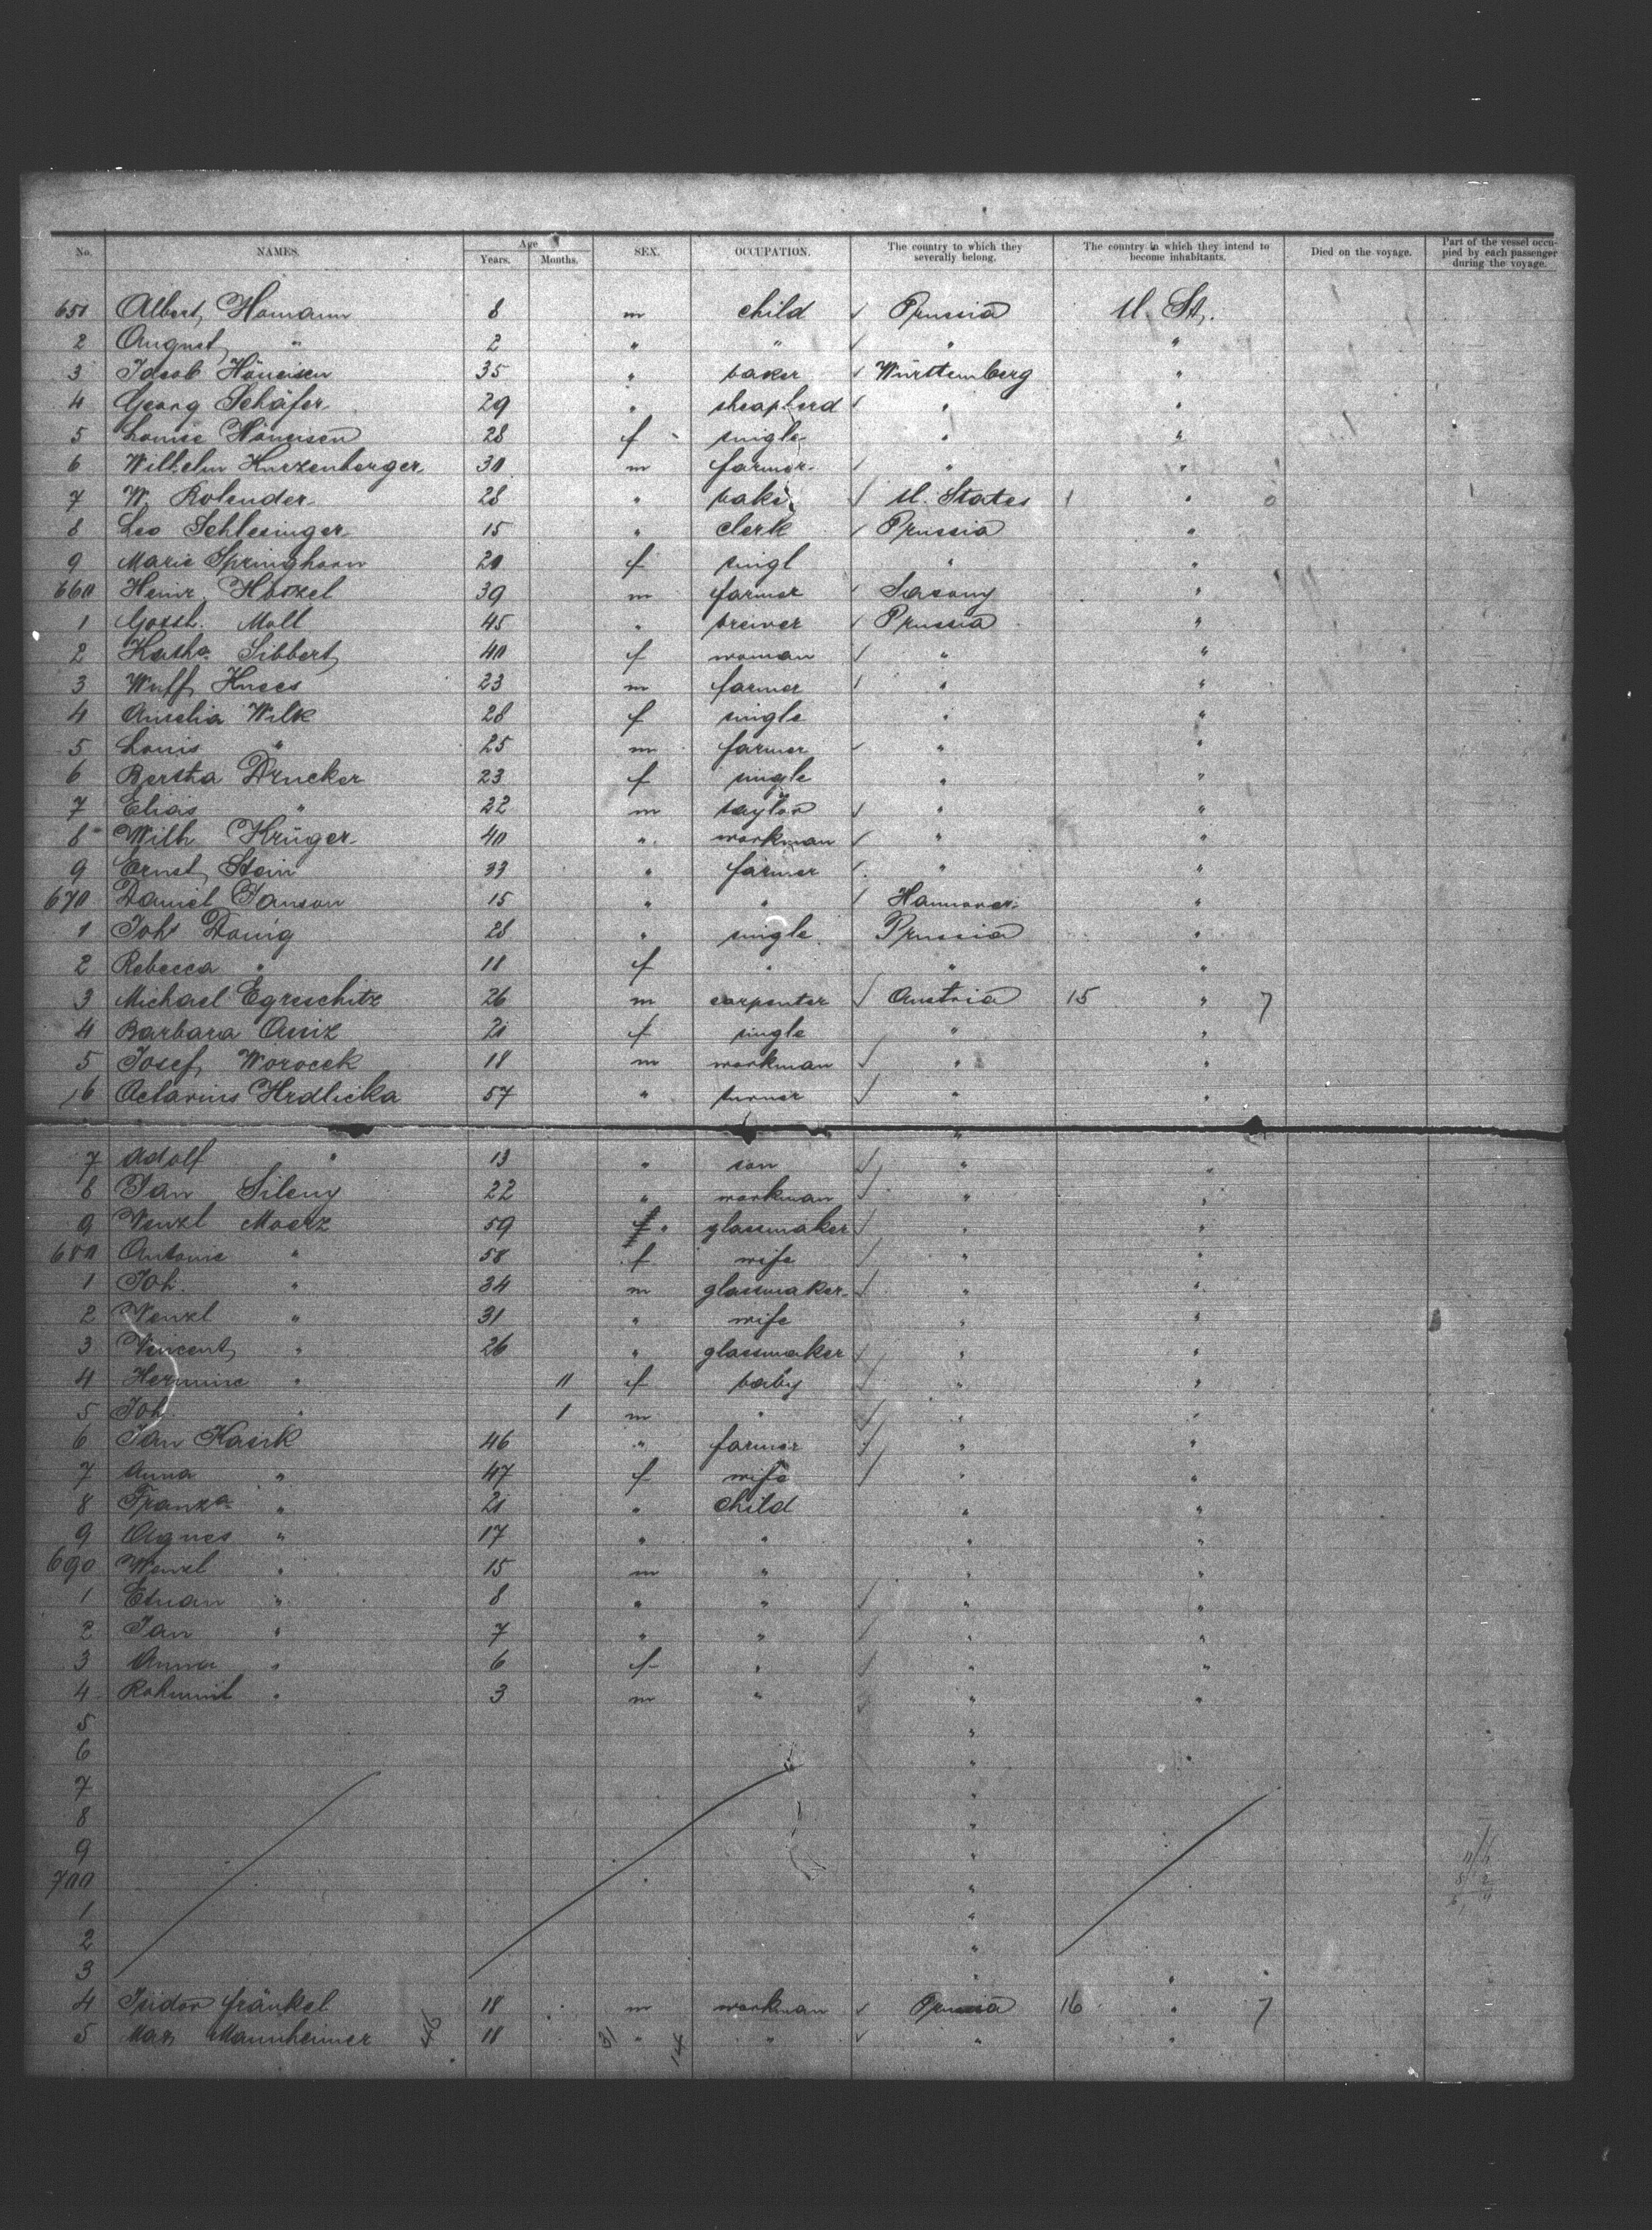 No. NAMES. Age Years. Months. SEX. OCCUPATION. The country to which they severally belong. The country in which they intend to become inhabitants. Died on the voyage. Part of the vessel occupied by each passenger during the voyage.
651 Albert Homann 8 m child Prussia U. St.
2 August " 2 " " " "
3 Jacob Höneisen 35 " baker Württemberg "
4 Georg Schäfer 29 " sheapherd " "
5 Louise Höneisen 28 f single " "
6 Wilhelm Kurzenberger 30 m farmer " "
7 W. Rolender 28 " U. States 1 " 0
8 Leo Schlesinger 15 " clerk Prussia "
9 Marie Springhorn 20 f singl " "
660 Heinr. Hötzel 39 m farmer Saxony "
1 Gottl. Moll 45 " brewer Prussia "
2 Katha Sibbert 40 f woman " "
3 Wulf Knees 23 m farmer " "
4 Amelia Wilk 28 f single " "
5 Louis " 25 m farmer " "
6 Bertha Drucker 23 f single " "
7 Elias " 22 m taylor " "
8 Wilh Krüger 40 " workman " "
9 Ernst Stein 33 " farmer " "
670 Daniel Janson 15 " " Hannover "
1 Joh Donig 28 " single Prussia "
2 Rebecca " 18 f " " "
3 Michael Egreschitz 26 m carpenter Austria 15 " 7
4 Barbara 21 f single " "
5 Josef Worocek 18 m workman " "
6 Octavius Hrdlicka 57 " turner " "
"
7 Adolf " 13 " son " "
8 Jan Sileny 22 " workman " "
9 Wenzl Moerz 59 " glassmaker " "
680 Antonie " 58 f wife " "
1 Joh. " 34 m glassmaker " "
2 Wenzl " 31 " wife " "
3 Vincent " 26 " glassmaker " "
4 Hermine " 11 f baby " "
5 Joh. " 1 m " " "
6 Jan Kasik 46 " farmer " "
7 Anna " 47 f wife " "
8 Franza " 21 " child " "
9 Agnes " 17 " " " "
690 Wenzl " 15 m " " "
1 " 8 " " " "
2 Jan " 7 " " " "
3 Anna " 6 f " " "
4 " 3 m " " "
5 "
6 " "
7 "
8 "
9 "
700 "
1 "
2 "
3 " "
4 Isidor Fränkel 18 m workman Prussia 16 " 7
5 Max Mannheimer 46 18 31 " 14 " " "